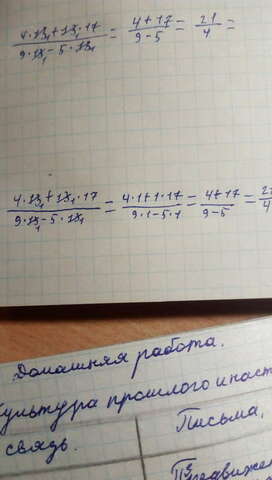 4·18₁+18₁·17 / 9·18₁-5·18₁ = 4+17 / 9-5 = 21 / 4 =
4·18₁+18₁·17 / 9·18₁-5·18₁ = 4·1+1·17 / 9·1-5·1 = 4+17 / 9-5 = 21 / 4
Домашняя работа.
Культура прошлого и наст
связь.
Письма,